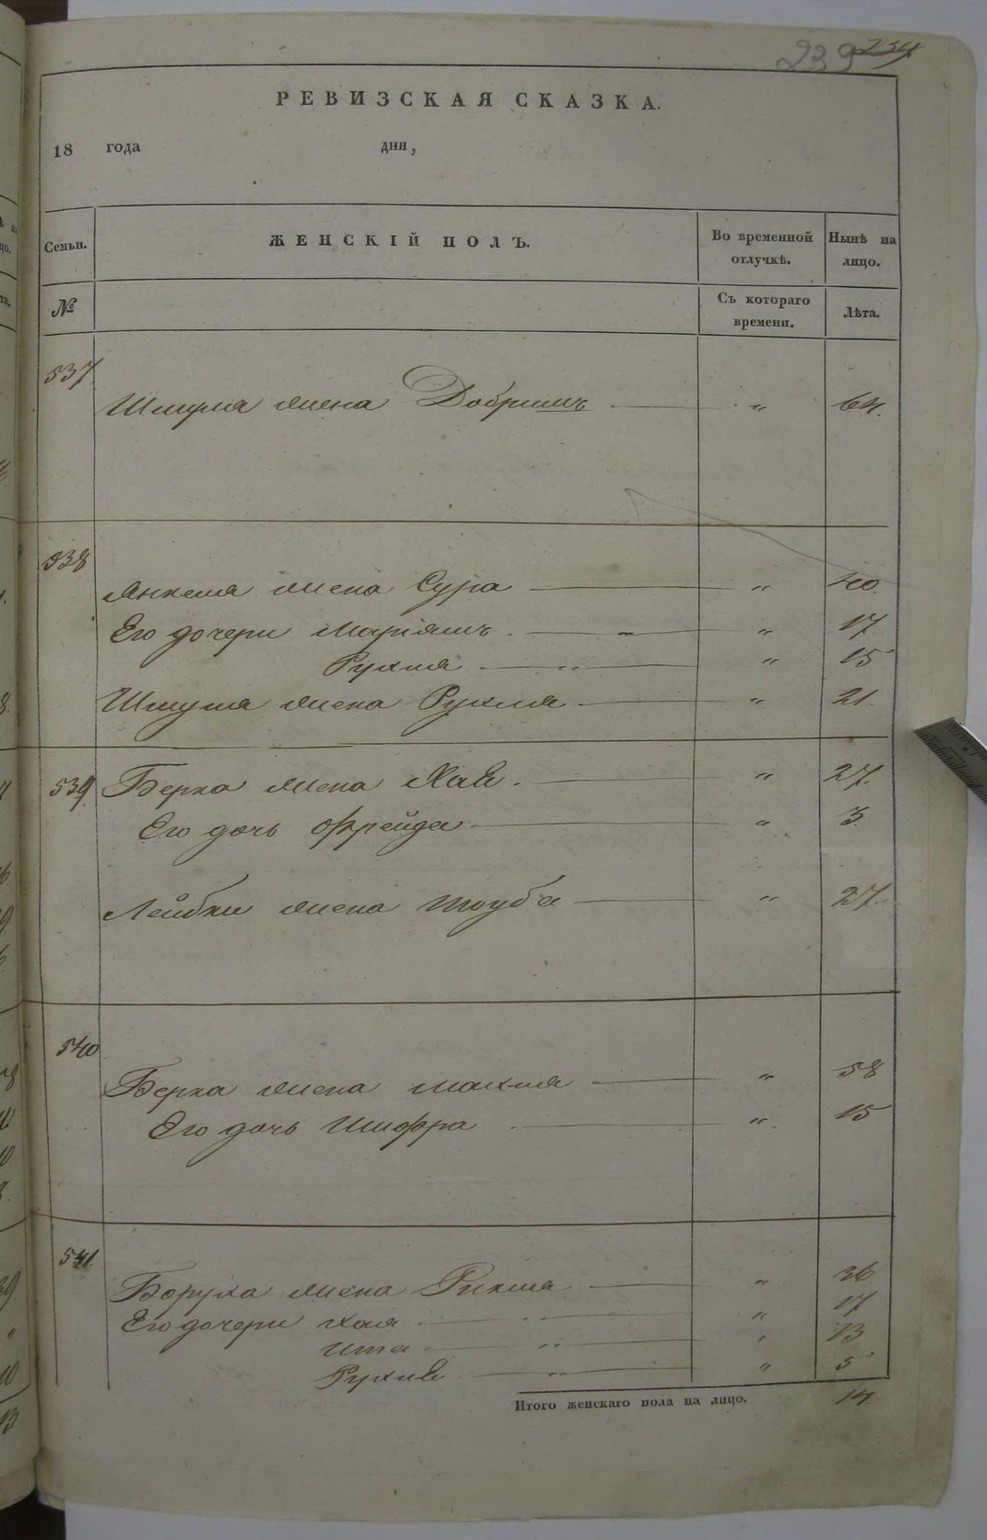 239 234
РЕВИЗСКАЯ СКАЗКА.
18 года дня,
Семьи. ЖЕНСКІЙ ПОЛЪ. Во временной отлучкѣ. Нынѣ на лицо.
№ Съ котораго времени. Лѣта.
537
Шмуля жена Добришъ " 64.
538
Янкеля жена Сура " 40.
Его дочери Маріямъ " 17
Рухля " 15
Шмуля жена Рухля " 21.
539 Берка жена Хая " 27.
Его дочь Фрейда " 3.
Лейбки жена Тоуба " 27.
540
Берка жена Махля " 58
Его дочь Шифра " 15
541.
Боруха жена Рикля " 36
Его дочери Хая " 17
Ита " 13
Рухля " 5
Итого женскаго пола на лицо. 14.